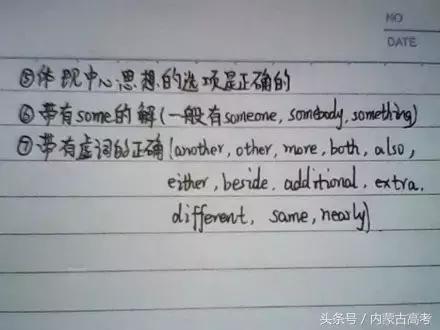 NO
DATE
⑤体现中心思想的选项是正确的
⑥带有some的解(一般有someone, somebody, something)
⑦带有虚词的正确(another, other, more, both, also,
either, beside, additional, extra.
different, same, nearly)
头条号/内蒙古高考